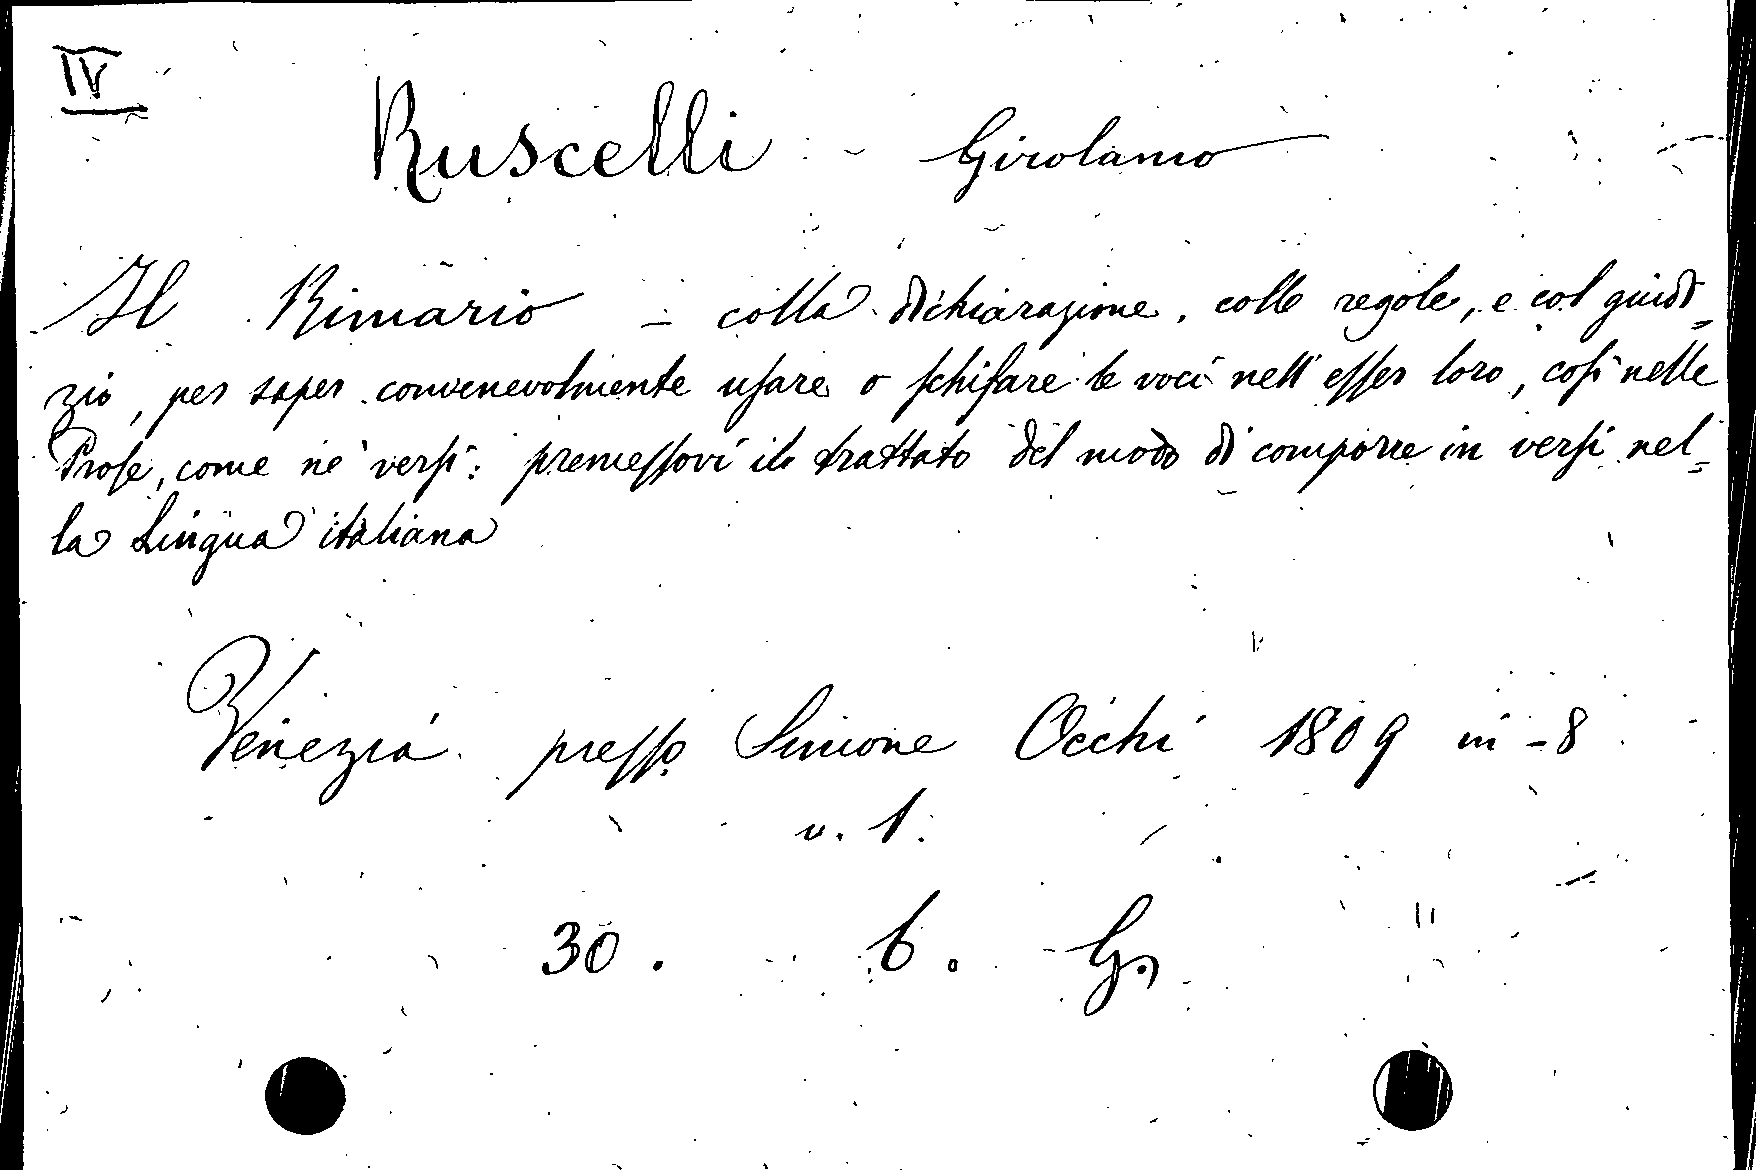 IV
Ruscelli - Girolamo
Il Rimario - colla dichiarazione, colle regole, e col giudi=
zio, per saper convenevolmente usare o schifare le voci nell'esser loro, così nelle
Prose, come ne' versi: premessovi il trattato del modo di comporre in versi nel=
la Lingua italiana
Venezia presso Simone Occhi 1809 in-8
v. 1.
30. 6. G.